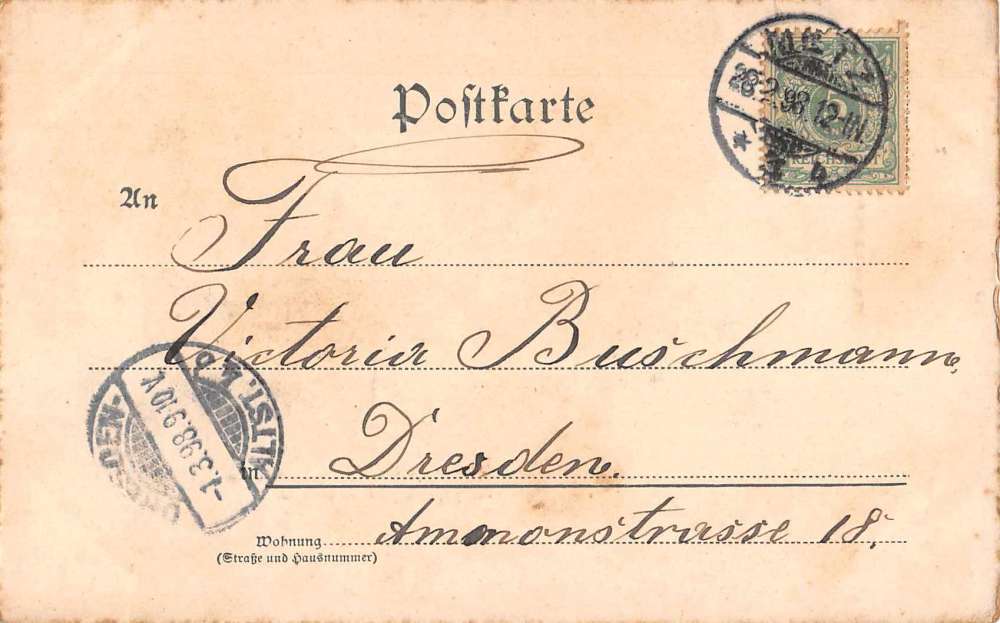 Postkarte
28.2.98 12-1N.
5
REICHSPOST
An
Frau
Victoria Buschmann,
in Dresden.
Ammonstrasse 18.
Wohnung
(Straße und Hausnummer)
DRESDEN-ALTST.
-1.3.98.9.10V.